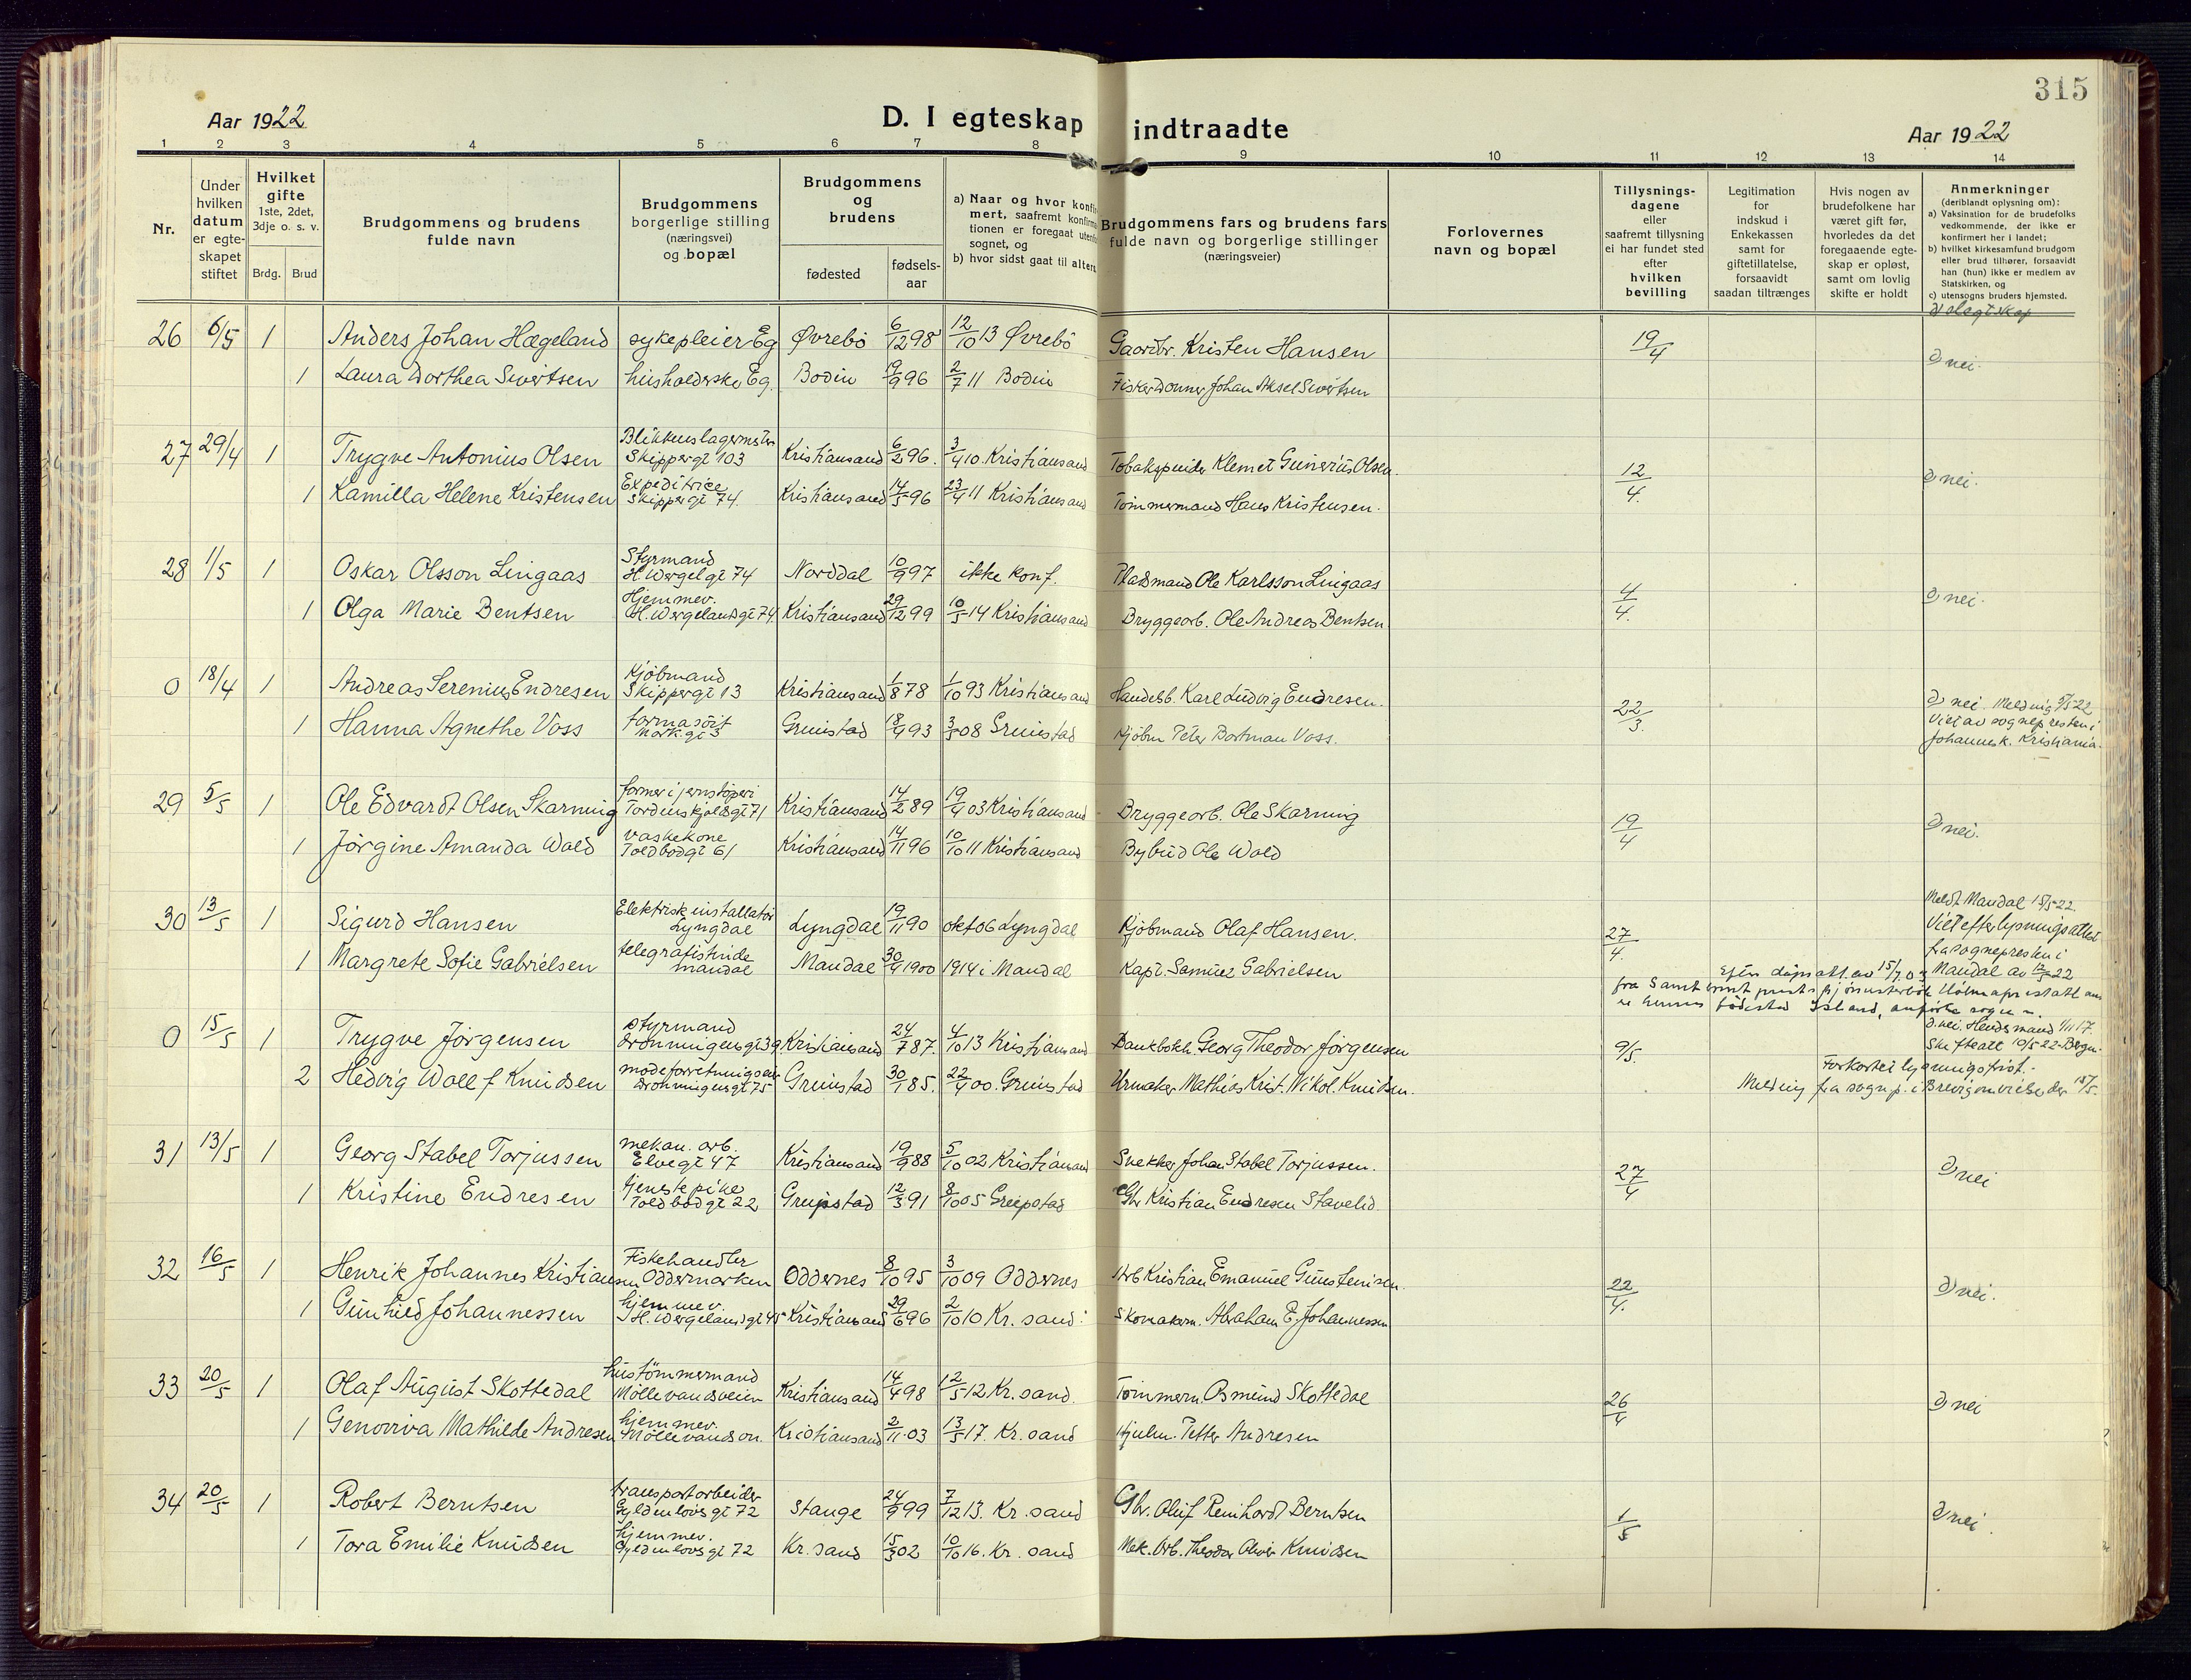 315
Aar 1922
D. I egteskap indtraadte
Aar 1922
1 2 3 4 5 6 7 8 9 10 11 12 13 14
Nr.
Under hvilken datum er egte-skapet stiftet
Hvilket gifte 1ste, 2det, 3dje o. s. v.
Brdg. Brud
Brudgommens og brudens fulde navn
Brudgommens borgerlige stilling (næringsvei) og bopæl
Brudgommens og brudens
fødested fødsels-aar
a) Naar og hvor
b) hvor sidst gaat til alters
Brudgommens fars og brudens fars fulde navn og borgerlige stillinger (næringsveier)
Forlovernes navn og bopæl
Tillysnings-dagene eller saafremt tillysning ei har fundet sted efter hvilken bevilling
Legitimation for indskud i Enkekassen samt for giftetillatelse, forsaavidt saadan tiltrænges
Hvis nogen av brudefolkene har været gift før, hvorledes da det foregaaende egte-skap er opløst, samt om lovlig skifte er holdt
Anmerkninger (deriblandt oplysning om):
a) Vaksination for de brudefolks vedkommende, der ikke er konfirmert her i landet;
b) hvilket kirkesamfund brudgom eller brud tilhører, forsaavidt han (hun) ikke er medlem av Statskirken, og
c) utensogns bruders hjemsted.
d) slegtskap
26 6/5 1 Anders Johan Hægeland sykepleier Eg Øvrebö 6/12 98 12/10 13 Øvrebö Gaardbr. Kristen Hansen 19/4 d) nei.
1 Laura Dorthea Sivertsen husholderske Eg. Bodin 19/9 96 2/7 11 Bodin Johan Aksel Sivertsen
27 29/4 1 Trygve Antonius Olsen Blikkenslagermester Skippergt 103 Kristiansand 6/2 96. 3/4 10. Kristiansand Klemet Gunerius Olsen. 12/4. d) nei.
1 Kamilla Helene Kristensen Expeditrice Skippergt 74. Kristiansand 14/5 96 23/4 11 Kristiansand Tömmermand Hans Kristensen.
28 1/5 1 Oskar Olsson Lingaas Styrmand H. Wergelgt 74 Norddal 10/9 97 ikke konf. Pladsmand Ole Karlsson Lingaas 4/4. d) nei.
1 Olga Marie Bentsen Hjemmev. H. Wergelandsgt 74 Kristiansand 29/12 99 10/5 14 Kristiansand Bryggearb. Ole Andreas Bentsen
0 18/4 1 Andreas Serenius Endresen Kjöbmand Skippergt 13 Kristiansand 1/8 78 1/10 93 Kristiansand Handelsb. Karl Ludvig Endresen. 22/3. d) nei. Melding 5/5 22
Viet av sognepresten i
Johannesk. Kristiania.
1 Hanna Agnethe Voss Mark.gt 3 Grimstad 18/4 93 3/5 08 Grimstad Kjöbm Peter Bortman Voss.
29 5/5 1 Ole Edvardt Olsen Skarning former i jernstöperi Tordenskjoldsgt 71 Kristiansand 14/2 89 19/4 03 Kristiansand Bryggearb. Ole Skarning 19/4 d) nei.
1 Jörgine Amanda Wold Vaskekone Toldbodgt 61 Kristiansand 14/11 96 10/10 11 Kristiansand Bybud Ole Wold
30 13/5 1 Sigurd Hansen Elektrisk installatör Lyngdal Lyngdal 19/11 90 okt 06 Lyngdal Kjöbmand Olaf Hansen. 27/4. Meldt Mandal 15/5 22.
Viet efter lysningsattest
fra sognepresten i
Mandal av 12/5 22
1 Margrete Sofie Gabrielsen telegrafistinde Mandal Mandal 30/4 1900 1914 i Mandal Kapt. Samuel Gabrielsen
0 15/5 1 Trygve Jörgensen styrmand Dronningensgt 39. Kristiansand 24/7 87. 4/10 13 Kristiansand Bankbokh. Georg Theodor Jörgensen 9/5.
2 Hedvig Wolff Knudsen modeforretning Dronningensgt 75 Grimstad 30/1 85. 22/4 00. Grimstad Urmaker Mathias Krist. Nikol. Knudsen.
Forkortet lysningsfrist.
Melding fra sognep. i Brevig om vielse der 15/5.
31 13/5 1 Georg Stabel Torjussen mekan. arb. Elvegt 47 Kristiansand 19/9 88 5/10 02 Kristiansand Snekker Johan Stabel Torjussen. 27/4 d) nei
1 Kristine Endresen tjenestepike Toldbodgt 22 Greipstad 12/3 91 8/10 05 Greipstad Gbr Kristian Endresen Stavelid.
32 16/5 1 Henrik Johannes Kristiansen Fiskehandler Oddermarken Oddernes 8/10 95 3/10 09 Oddernes Arb Kristian Emanuel Gunstensen. 22/4. d) nei.
1 Gunhild Johannessen hjemmev. H. Wergelandsgt 45 Kristiansand 29/6 96 2/10 10 Kr. sand. Skomakerm. Abraham E. Johannessen
33 20/5 1 Olaf August Skottedal hustömmermand Möllevandsveien Kristiansand 14/4 98 12/5 12 Kr. sand. Tömmerm. Osmund Skottedal 26/4 d) nei
1 Genoviva Mathilde Andresen hjemmev. Möllevandsv. Kristiansand 2/11 03 13/5 17. Kr. sand Petter Andresen
34 20/5 1 Robert Berntsen transportarbeider Gyldenlövsgt 72 Stange 24/9 99 7/12 13. Kr. sand Gbr. Oluf Reinhardt Berntsen 1/5 d) nei.
1 Tora Emilie Knudsen hjemmev. Gyldenlövsgt 72 Kr. sand 15/3 02 10/10 16. Kr. sand Mek. Arb. Theodor Oliver Knudsen